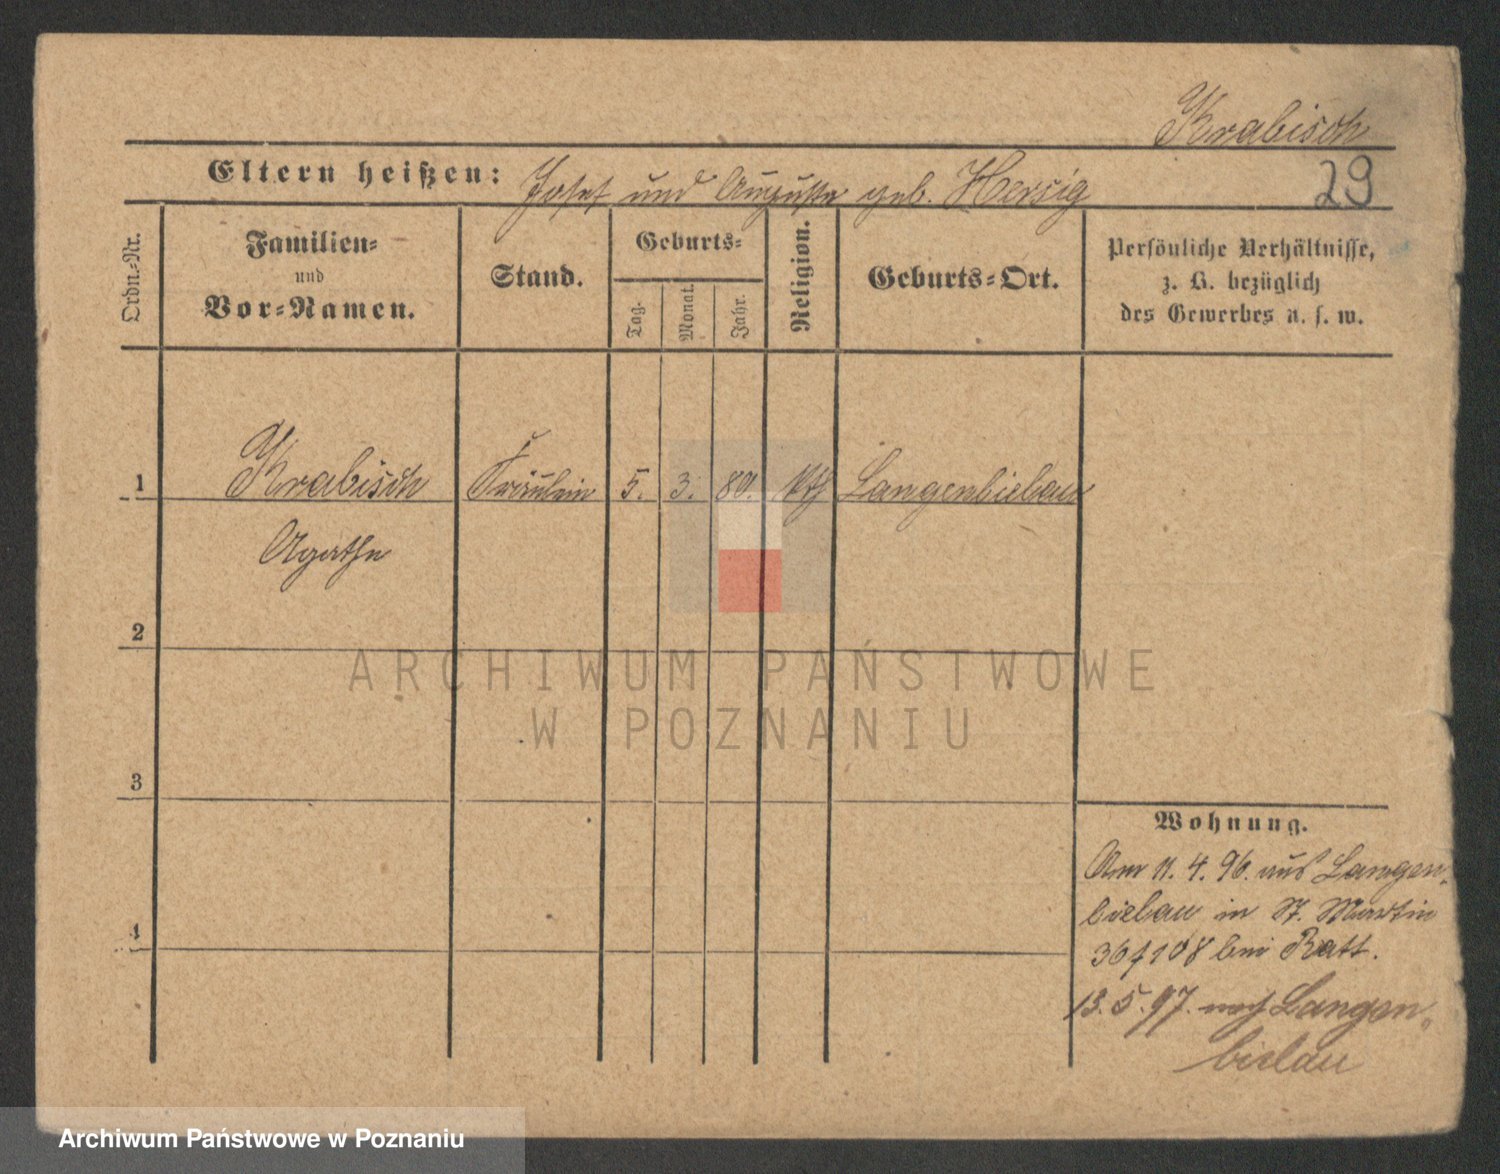 Krabisch
Eltern heißen: Josef und Auguste geb. Hersig
29
Ordn.-Nr.
Familien-
und
Vor-Namen.
Stand.
Geburts-
Tag.
Monat.
Jahr.
Religion.
Geburts-Ort.
Persönliche Verhältnisse,
z. B. bezüglich
des Gewerbes u. s. w.
1 Krabisch Fräulein 5. 3. 80. kth Langenbielau
Agathe
2
ARCHIWUM PAŃSTWOWE
W POZNANIU
3
Wohnung.
Am 11. 4. 96. aus Langen-
bielau in St. Martin
bei Ratt.
4
13. 5. 97. nach Langen-
bielau
Archiwum Państwowe w Poznaniu